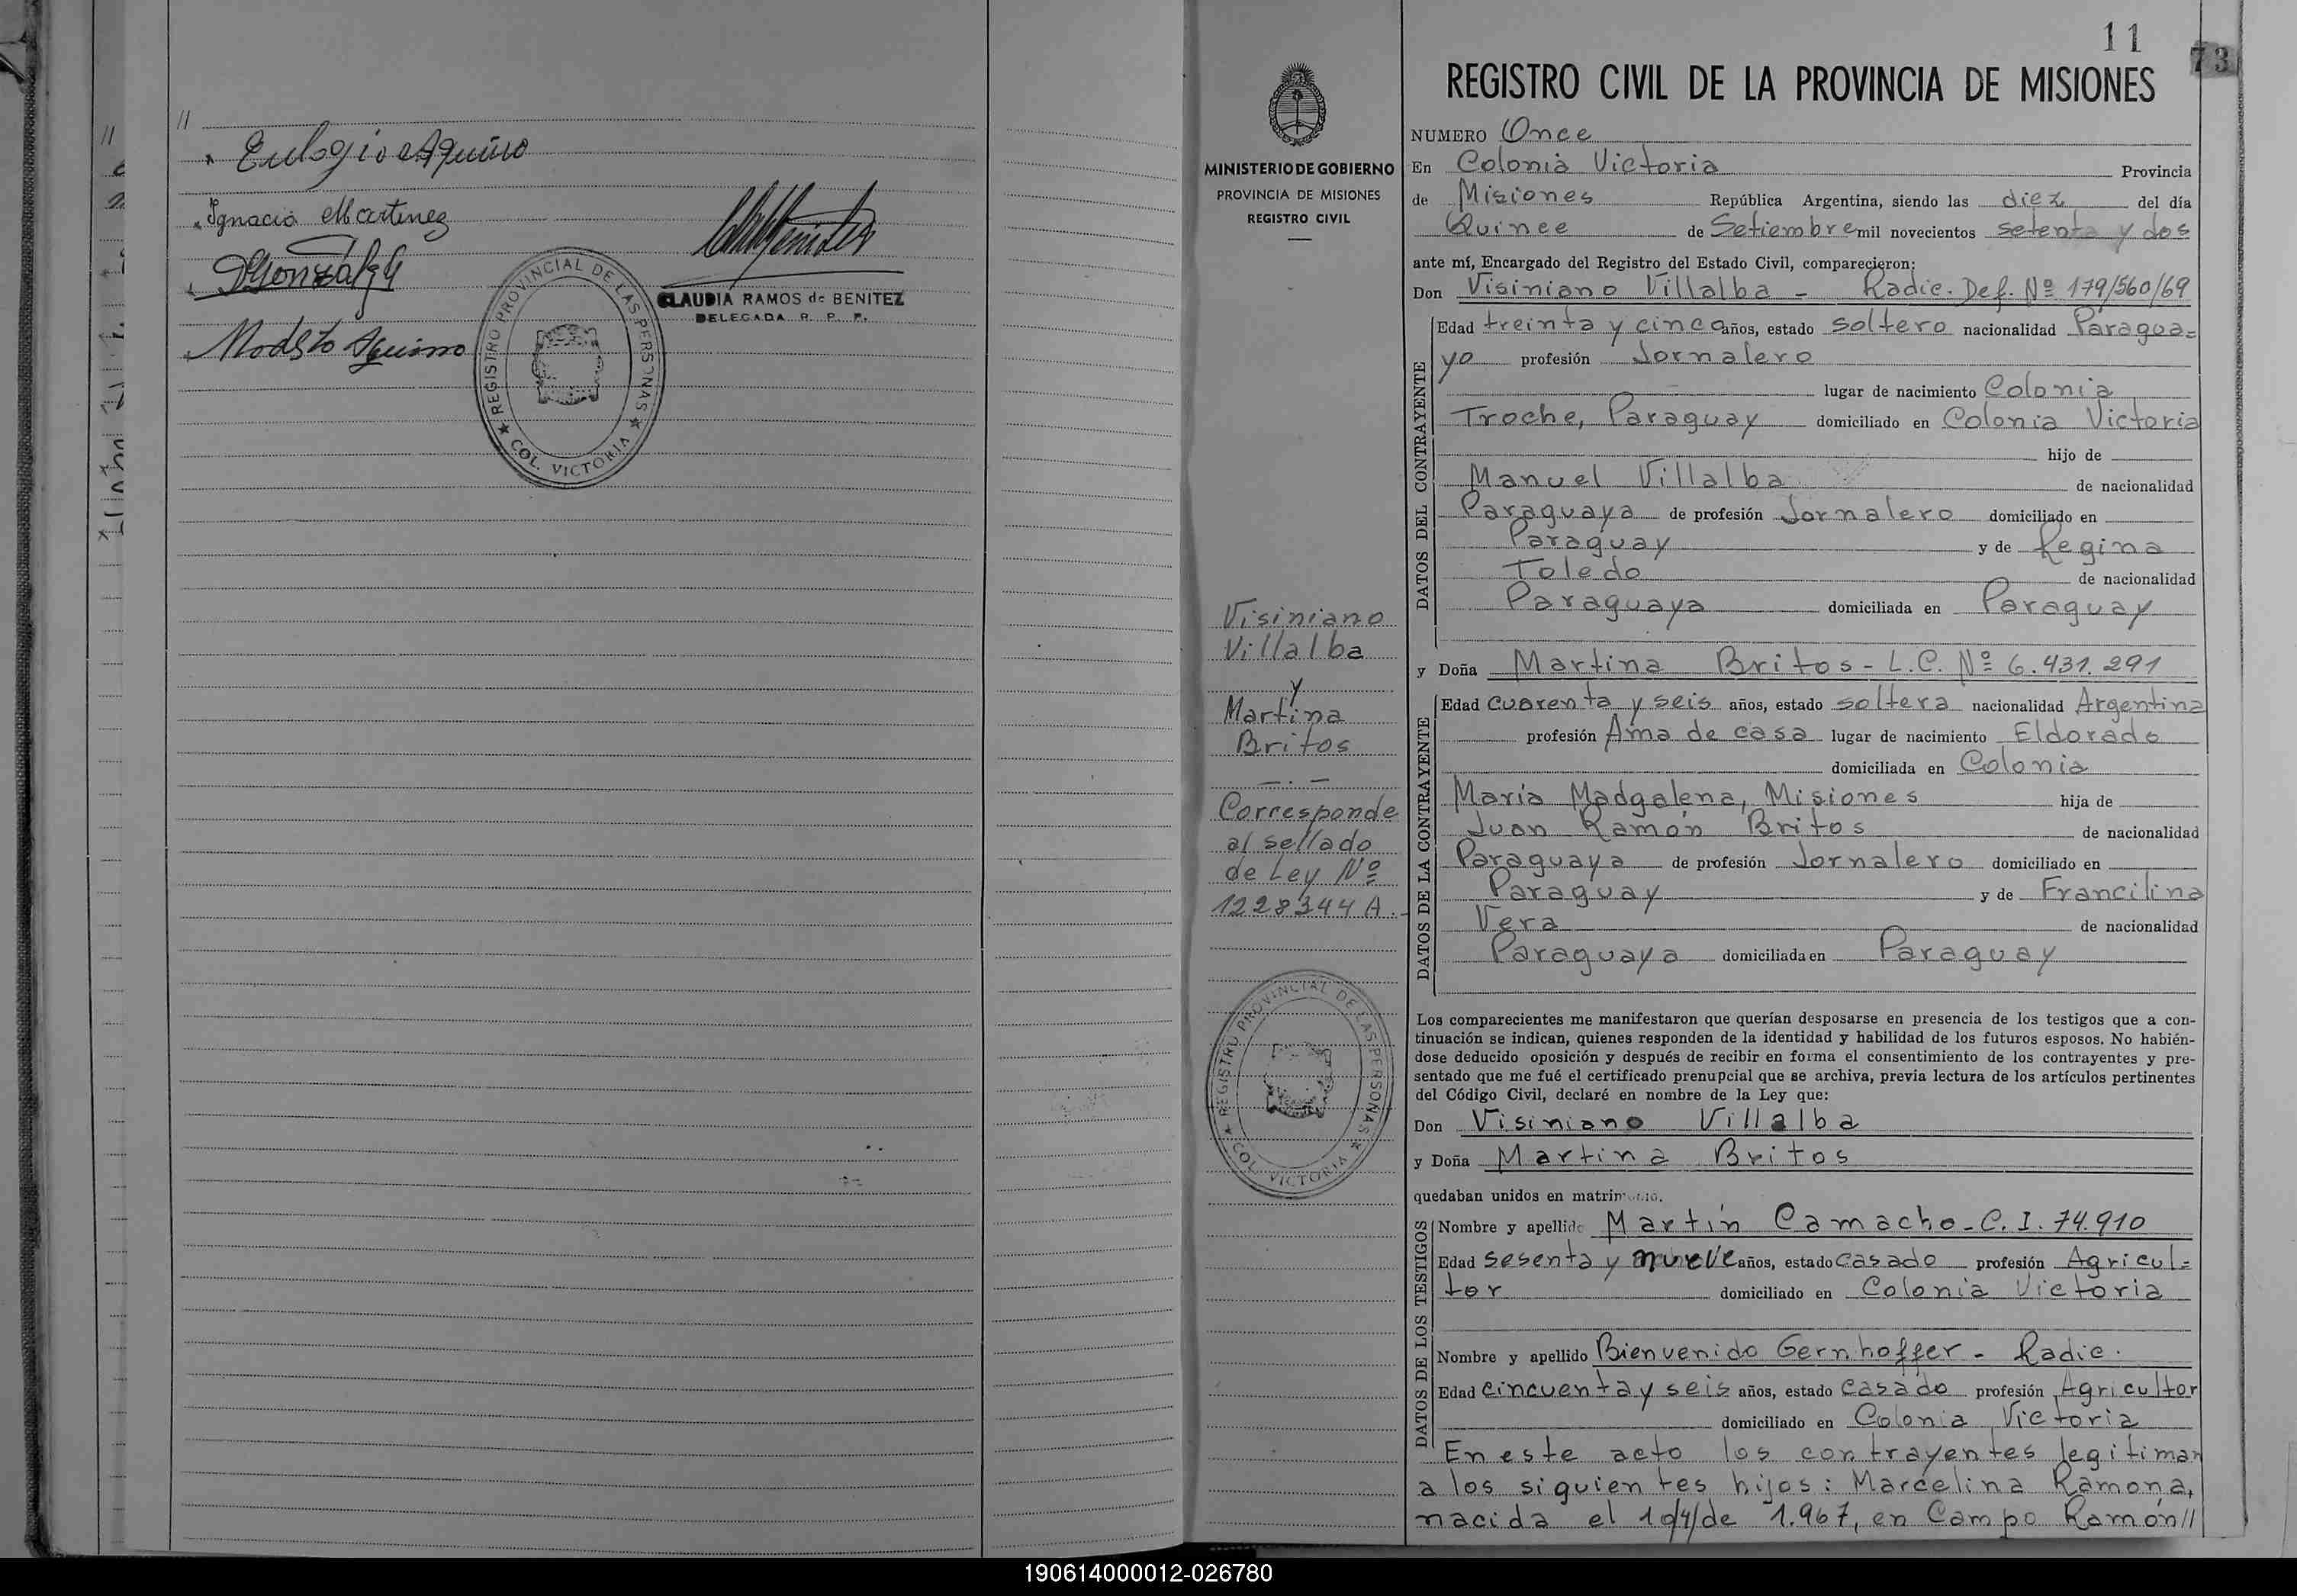 //
Eulogio Aquino
Ignacio Martinez
DGonzález
Modesto Aquino
CLAUDIA RAMOS de BENITEZ
DELEGADA R. P. P.
REGISTRO PROVINCIAL DE LAS PERSONAS
COL. VICTORIA
11
73
MINISTERIO DE GOBIERNO
PROVINCIA DE MISIONES
REGISTRO CIVIL
Visiniano
Villalba
y
Martina
Britos
Corresponde
al sellado
de Ley Nº
1228344 A.
REGISTRO PROVINCIAL DE LAS PERSONAS
COL. VICTORIA
REGISTRO CIVIL DE LA PROVINCIA DE MISIONES
NUMERO Once
En Colonia Victoria Provincia
de Misiones República Argentina, siendo las diez del día
Quince de Setiembre mil novecientos setenta y dos
ante mí, Encargado del Registro del Estado Civil, comparecieron:
Don Visiniano Villalba - Radic. Def. Nº 179/560/69
DATOS DEL CONTRAYENTE
Edad treinta y cinco años, estado soltero nacionalidad Paragua=
yo profesión Jornalero
lugar de nacimiento Colonia
Troche, Paraguay domiciliado en Colonia Victoria
hijo de
Manuel Villalba de nacionalidad
Paraguaya de profesión Jornalero domiciliado en
Paraguay y de Regina
Toledo de nacionalidad
Paraguaya domiciliada en Paraguay
y Doña Martina Britos - L.C. Nº 6.431.291
DATOS DE LA CONTRAYENTE
Edad cuarenta y seis años, estado soltera nacionalidad Argentina
profesión Ama de casa lugar de nacimiento Eldorado
domiciliada en Colonia
María Madgalena, Misiones hija de
Juan Ramón Britos de nacionalidad
Paraguaya de profesión Jornalero domiciliado en
Paraguay y de Francilina
Vera de nacionalidad
Paraguaya domiciliada en Paraguay
Los comparecientes me manifestaron que querían desposarse en presencia de los testigos que a con-
tinuación se indican, quienes responden de la identidad y habilidad de los futuros esposos. No habién-
dose deducido oposición y después de recibir en forma el consentimiento de los contrayentes y pre-
sentado que me fué el certificado prenupcial que se archiva, previa lectura de los artículos pertinentes
del Código Civil, declaré en nombre de la Ley que:
Don Visiniano Villalba
y Doña Martina Britos
quedaban unidos en matrimonio.
DATOS DE LOS TESTIGOS
Nombre y apellido Martín Camacho - C. I. 74.910
Edad sesenta y nueve años, estado casado profesión Agricul=
tor domiciliado en Colonia Victoria
Nombre y apellido Bienvenido Gernhoffer - Radic.
Edad cincuenta y seis años, estado casado profesión Agricultor
domiciliado en Colonia Victoria
En este acto los contrayentes legitiman
a los siguientes hijos: Marcelina Ramona,
nacida el 10/4/de 1.967, en Campo Ramón//
190614000012-026780